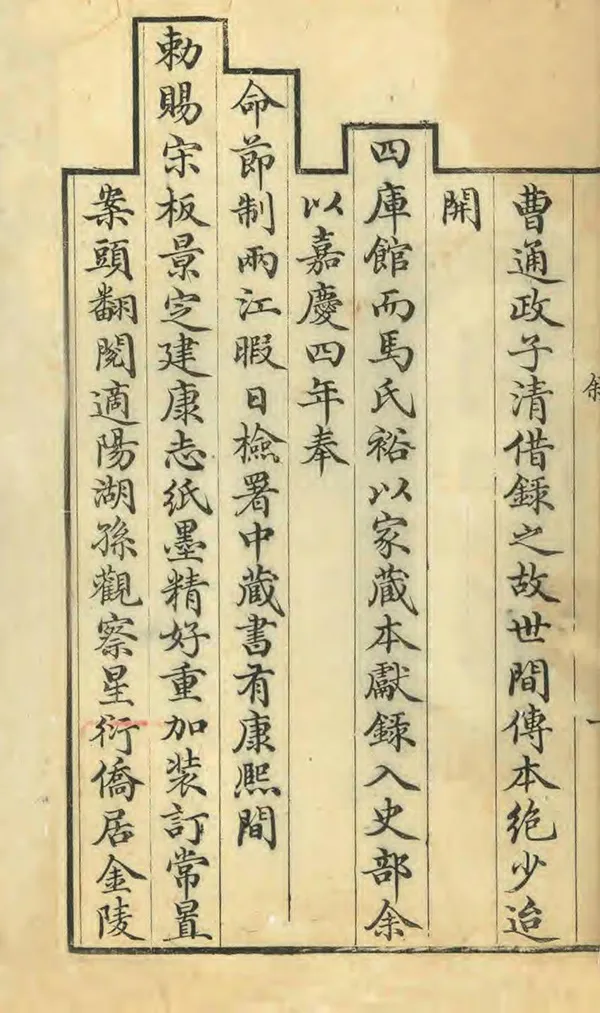 曹通政子清借録之故世間傳本絶少迨
開
四庫館而馬氏裕以家蔵本獻録入史部余
以嘉慶四年奉
命節制兩江暇日檢署中蔵書有康熙間
勅賜宋板景定建康志紙墨精好重加装訂常置
案頭翻閲適陽湖孫觀察星衍僑居金陵